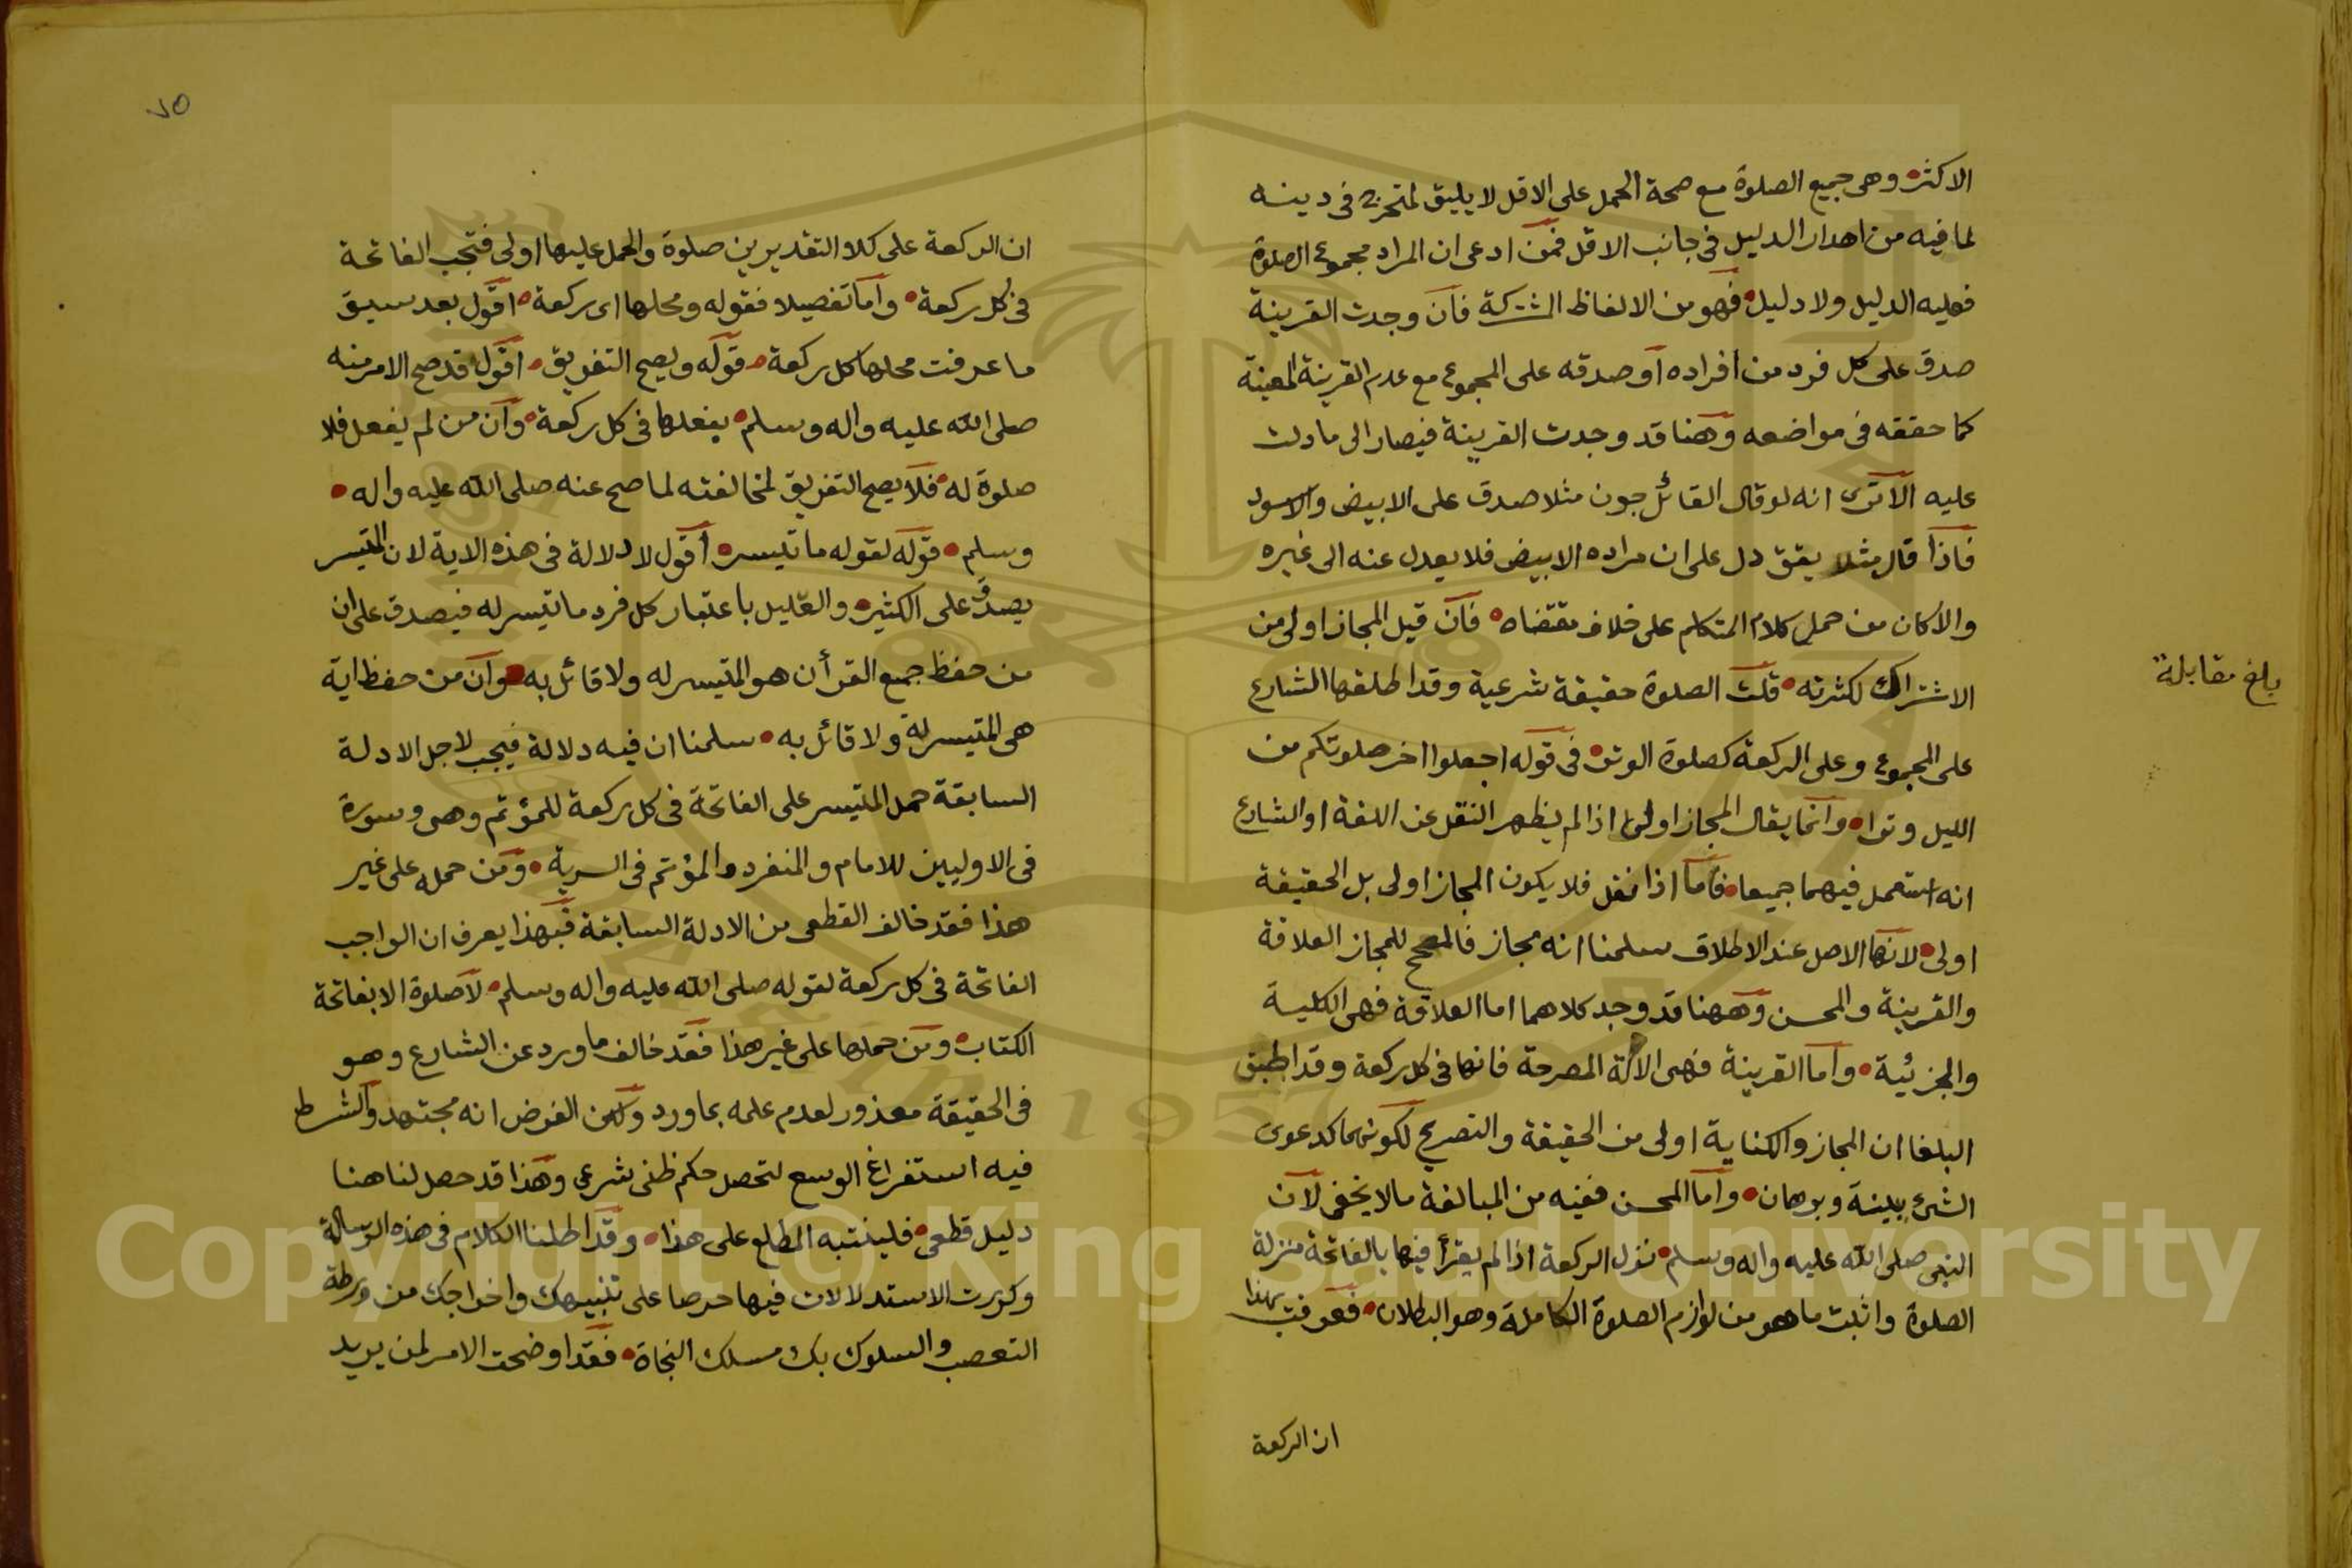 الاكثر وهى جميع الصلوة مع صحة الحمل على الاقل لا يليق لمتحرى فى دينه
لما فيه من اهدار الدليل فى جانب الاقل فمن ادعى ان المراد مجموع الصلوة
فعليه الدليل ولا دليل فهو من الالفاظ المشتركة فان وجدت القرينة
صدق على كل فرد من افراده او صدقه على المجموع مع عدم القرينة المعينة
كما حققه فى مواضعه وهنا قد وجدت القرينة فيصار الى ما دلت
عليه الا ترى انه لو قال القائل جون مثلا صدق على الابيض والاسود
فاذا قال مثلا يقق دل على ان مراده الابيض فلا يعدل عنه الى غيره
والا كان من حمل كلام المتكلم على خلاف مقتضاه فان قيل المجاز اولى من
الاشتراك لكثرته قلت الصلوة حقيقة شرعية وقد اطلقها الشارع
على المجموع وعلى الركعة كصلوة الوتر فى قوله اجعلوا اخر صلوتكم من
الليل وترا وانما يقال المجاز اولى اذا لم يظهر النقل عن اللغة او الشارع
انه استعمل فيهما جميعا فاما اذا نقل فلا يكون المجاز اولى بل الحقيقة
اولى لانها الاصل عند الاطلاق سلمنا انه مجاز فالمصحح للمجاز العلاقة
والقرينة والمحسن وههنا قد وجد كلاهما اما العلاقة فهى الكلية
والجزئية واما القرينة فهى الادلة المصرحة فانها فى كل ركعة وقد اطبق
البلغا ان المجاز والكناية اولى من الحقيقة والتصريح لكونهما كدعوى
الشئ ببينة وبرهان واما المحسن ففيه من المبالغة ما لا يخفى لان
النبى صلى الله عليه واله وسلم نزل الركعة اذا لم يقرأ فيها بالفاتحة منزلة
الصلوة واثبت ما هو من لوازم الصلوة الكاملة وهو البطلان فعرفت بهذا
ان الركعة
بلغ مقابلة
٧٥
ان الركعة على كلا التقديرين صلوة والحمل عليها اولى فتجب الفاتحة
فى كل ركعة واما تفصيلا فقوله ومحلها اى ركعة اقول بعد سبق
ما عرفت محلها كل ركعة قوله ويصح التفريق اقول قد صح الامر منه
صلى الله عليه واله وسلم بفعلها فى كل ركعة وان من لم يفعل فلا
صلوة له فلا يصح التفريق لمخالفته لما صح عنه صلى الله عليه واله
وسلم قوله لقوله ما تيسر اقول لا دلالة فى هذه الاية لان المتيسر
يصدق على الكثير والقليل باعتبار كل فرد ما تيسر له فيصدق على ان
من حفظ جميع القرأن هو المتيسر له ولا قائل به وان من حفظ اية
هى المتيسر له ولا قائل به سلمنا ان فيه دلالة فيجب لاجل الادلة
السابقة حمل المتيسر على الفاتحة فى كل ركعة للمؤتم وهى وسورة
فى الاوليين للامام والمنفرد والمؤتم فى السرية ومن حمله على غير
هذا فقد خالف القطعى من الادلة السابقة فبهذا يعرف ان الواجب
الفاتحة فى كل ركعة لقوله صلى الله عليه واله وسلم لا صلوة الا بفاتحة
الكتاب ومن حملها على غير هذا فقد خالف ما ورد عن الشارع وهو
فى الحقيقة معذور لعدم علمه بما ورد ولكن الفرض انه مجتهد والشرط
فيه استفراغ الوسع لتحصل حكم ظنى شرعى وهذا قد حصل لنا هنا
دليل قطعى فلينتبه المطلع على هذا وقد اطلنا الكلام فى هذه الرسالة
وكررت الاستدلالات فيها حرصا على تنبيهك واخراجك من ورطة
التعصب والسلوك بك مسلك النجاة فقد اوضحت الامر لمن يريد
Copyright © King Saud University
1957